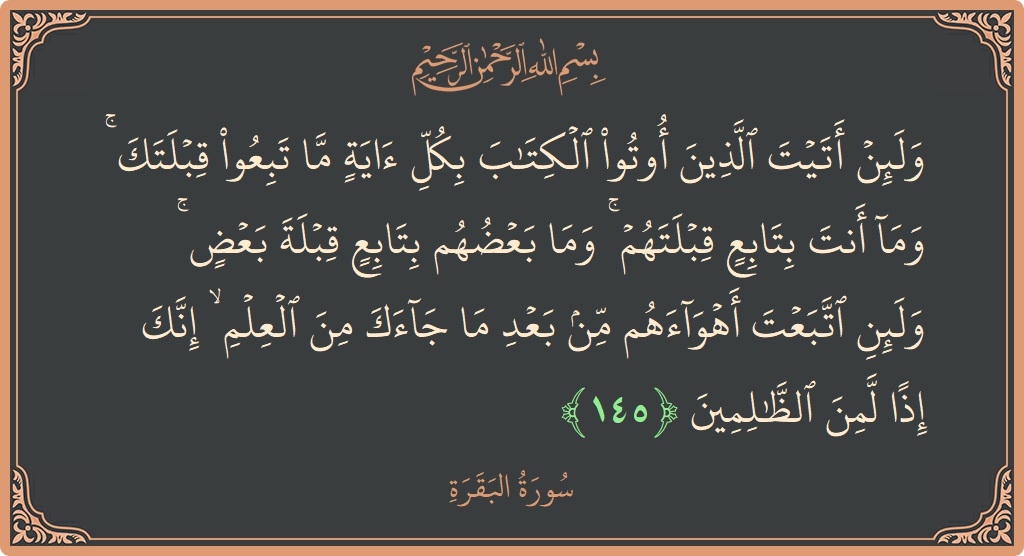 بِسْمِ اللهِ الرَّحْمٰنِ الرَّحِيْمِ
وَلَئِنۡ أَتَيۡتَ ٱلَّذِينَ أُوتُواْ ٱلۡكِتَٰبَ بِكُلِّ ءَايَةٖ مَّا تَبِعُواْ قِبۡلَتَكَۚ
وَمَآ أَنتَ بِتَابِعٖ قِبۡلَتَهُمۡۚ وَمَا بَعۡضُهُم بِتَابِعٖ قِبۡلَةَ بَعۡضٖۚ
وَلَئِنِ ٱتَّبَعۡتَ أَهۡوَآءَهُم مِّنۢ بَعۡدِ مَا جَآءَكَ مِنَ ٱلۡعِلۡمِۙ إِنَّكَ
إِذٗا لَّمِنَ ٱلظَّٰلِمِينَ ﴿١٤٥﴾
سُورَةُ البَقَرَةِ